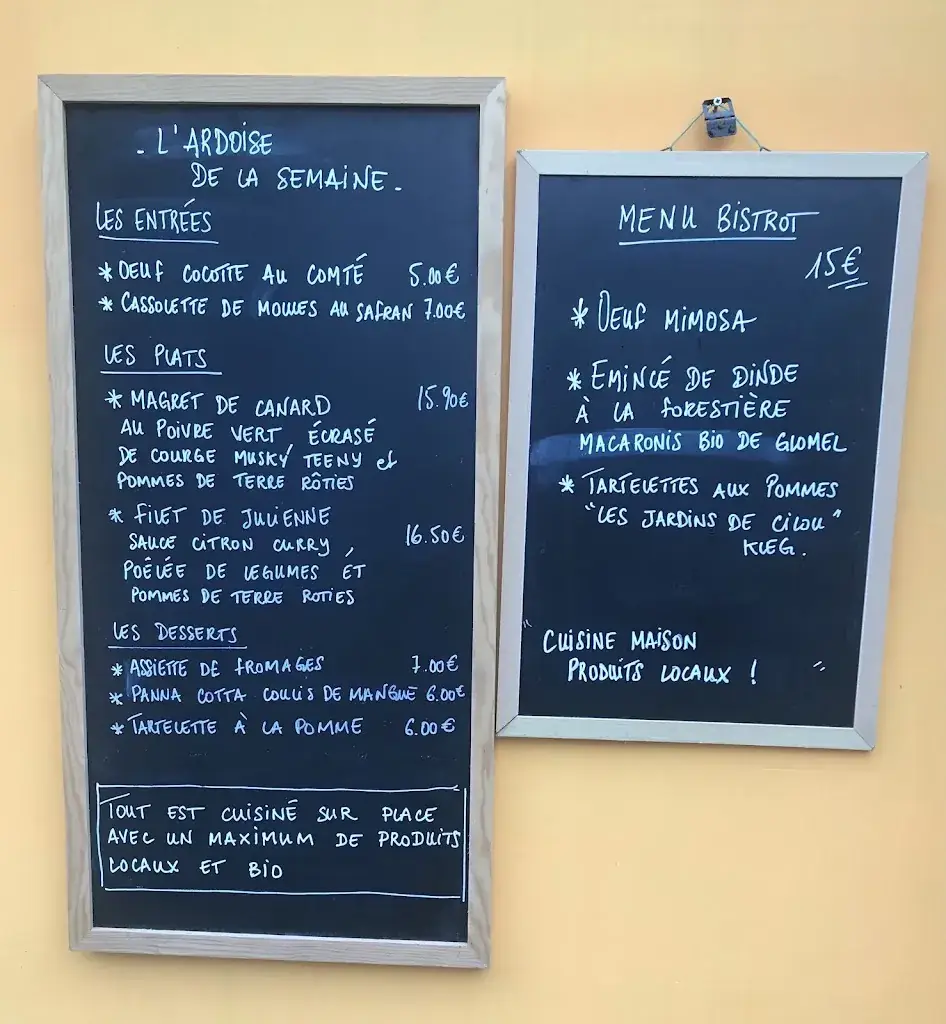 - L'ARDOISE
DE LA SEMAINE -
LES ENTRÉES
* OEUF COCOTTE AU COMTÉ 5.00€
* CASSOLETTE DE MOULES AU SAFRAN 7.00€
LES PLATS
* MAGRET DE CANARD 15.90€
AU POIVRE VERT, ÉCRASÉ
DE COURGE MUSKY TEENY et
POMMES DE TERRE RÔTIES
* FILET DE JULIENNE
SAUCE CITRON CURRY, 16.50€
POÊLÉE DE LÉGUMES ET
POMMES DE TERRE ROTIES
LES DESSERTS
* ASSIETTE DE FROMAGES 7.00€
* PANNA COTTA COULIS DE MANGUE 6.00€
* TARTELETTE À LA POMME 6.00€
TOUT EST CUISINÉ SUR PLACE
AVEC UN MAXIMUM DE PRODUITS
LOCAUX ET BIO
MENU BISTROT
15€
* OEUF MIMOSA
* EMINCÉ DE DINDE
À LA FORESTIÈRE
MACARONIS BIO DE GLOMEL
* TARTELETTES AUX POMMES
"LES JARDINS DE CILOU"
KLEG.
" CUISINE MAISON
PRODUITS LOCAUX ! "